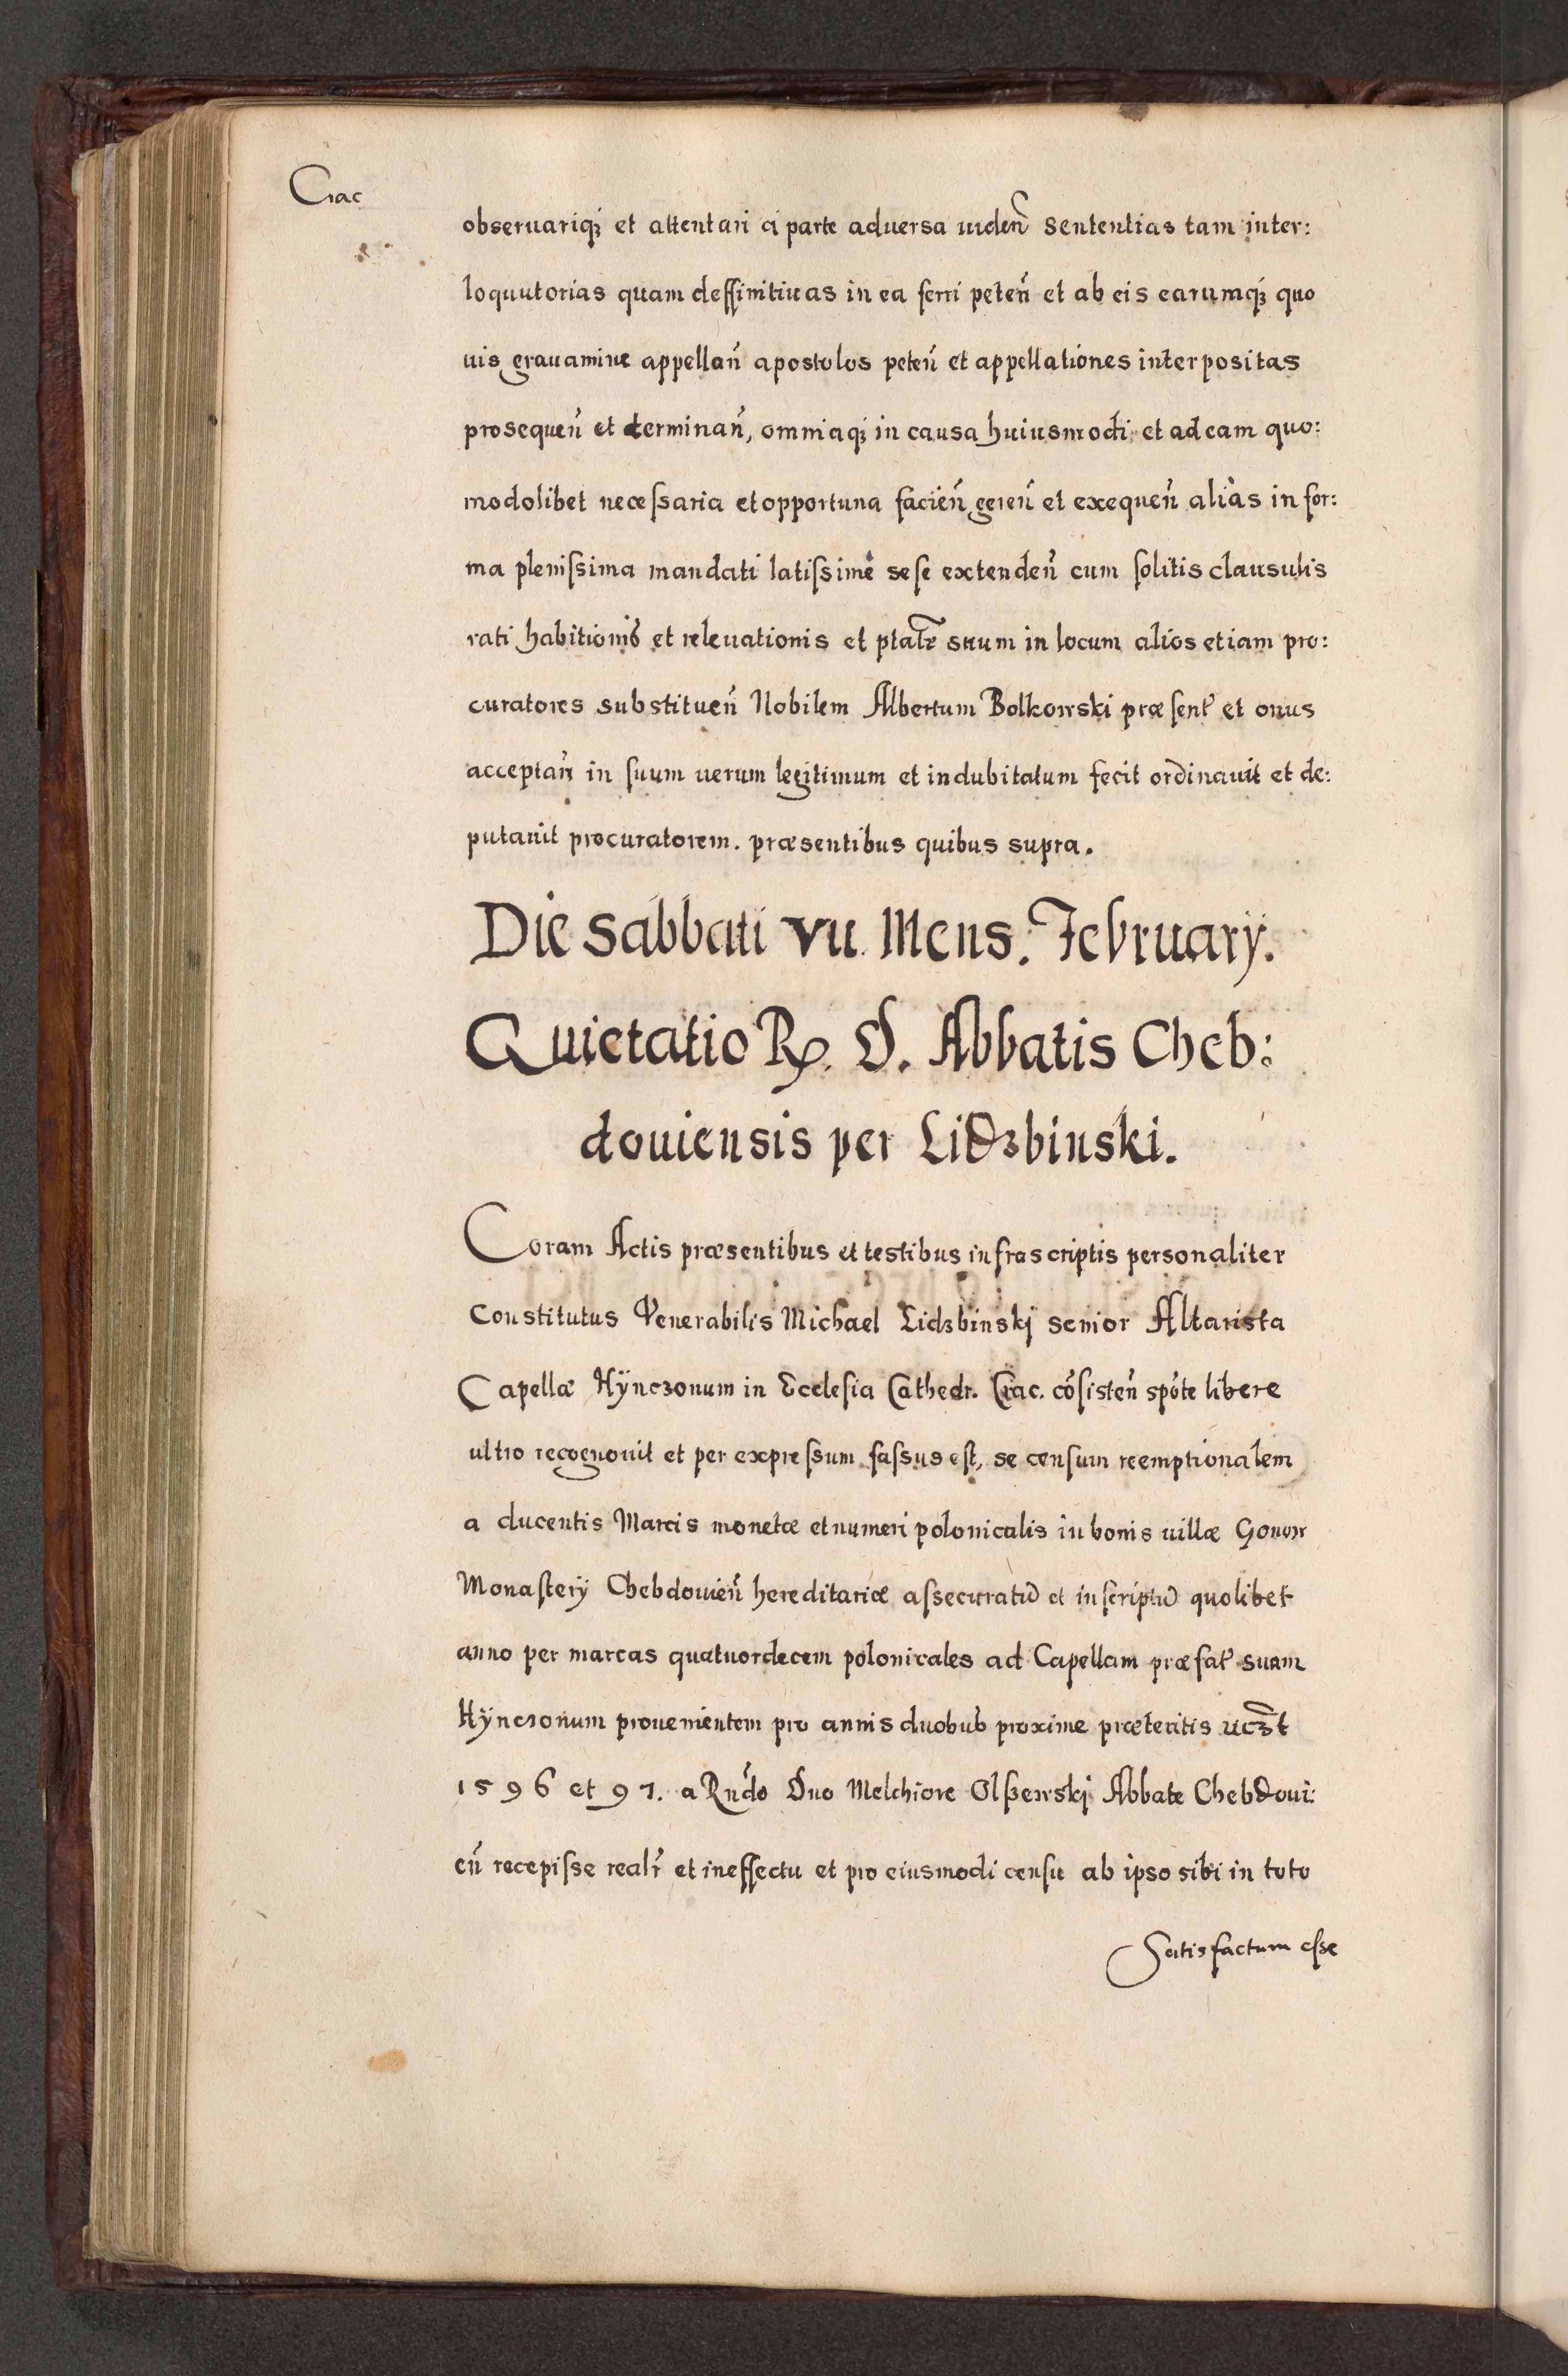 Crac
obseruariq́ꝫ et attentari ci parte aduersa uideñ Sententias tam inter:
loquutorias quam deffinitiuas in ea ferri peteñ et ab eis earumq́ꝫ quo
uis grauamine appellañ apostolos peteñ et appellationes interpositas
prosequeñ et terminañ, omniaqꝫ in causa huiusmodi et ad eam quo:
modolibet necessaria et opportuna facieñ gereñ et exequeñ aliàs in for:
ma plenissima mandati latissimè sese extendeñ cum solitis clausulis
rati habitionis et releuationis et ptater̃ suum in locum alios etiam pro:
curatores substitueñ Nobilem Albertum Bolkowski præsent̃ et onus
acceptañ in suum uerum legitimum et indubitatum fecit ordinauit et de:
putauit procuratorem. præsentibus quibus supra.
Die Sabbati VII. Mens. February.
Quietatio Rꝑ. D. Abbatis Cheb:
douiensis per Lidzbinski.
Coram Actis præsentibus et testibus infrascriptis personaliter
Constitutus Venerabilis Michael Lidzbinskj senior Altarista
Capellæ Hÿnczonum in Ecclesia Cathedr. Crac. cõsisteñ spõte libere
ultro recognouit et per expressum fassus est, se censum reemptionalem
a ducentis Marcis monetæ et numeri polonicalis in bonis uillæ Gonow
Monasterÿ Chebdouieñ hereditariæ assecuratũ et inscriptũ quolibet
anno per marcas quatuordecem polonicales ad Capellam præfat̃ suam
Hÿnczonum prouenientem pro annis duobus proxime præteritis uczt̃
1596 et 97. a Rñdo Dno Melchiore Olszewskj Abbate Chebdoui:
eñ recepisse realr̃ et in effectu et pro eiusmodi censu ab ipso sibi in toto
Satisfactum esse